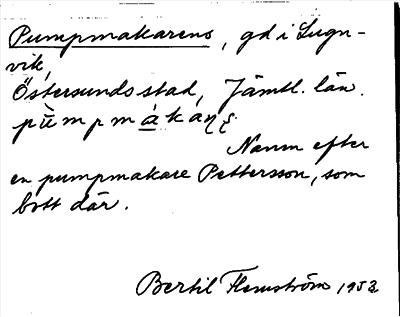 Pumpmakarens, gd i Lugn-
vik,
Östersunds stad, Jämtl. län.
Namn efter
en pumpmakare Pettersson, som
bott där.
Bertil Flemström 1953